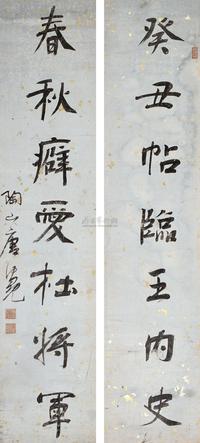 癸丑帖臨王內史
春秋癖愛杜將軍
陶山唐仲冕